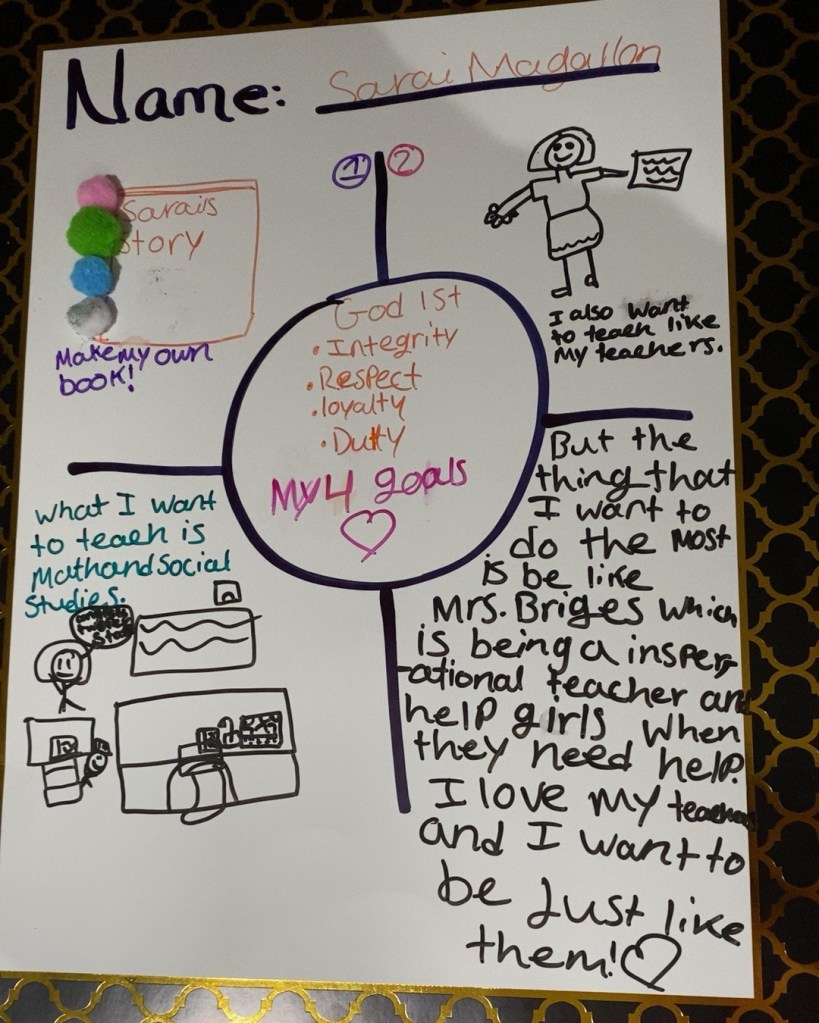 Name: Sarai Magallon
1 2
Sarais
Story
Make my own
book!
I also want
to teach like
My teachers.
God 1st
• Integrity
• Respect
• loyalty
• Duty
My 4 goals
What I want
to teach is
Math and Social
Studies.
But the
thing that
I want to
do the most
is be like
Mrs. Briges which
is being a insper-
ational teacher and
help girls when
they need help.
I love my teachers
and I want to
be Just like
them!